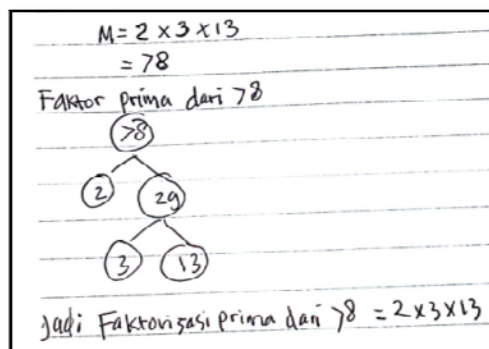 M = 2 x 3 x 13
= 78
Faktor prima dari 78
78
2 29
3 13
Jadi Faktorisasi prima dari 78 = 2 x 3 x 13